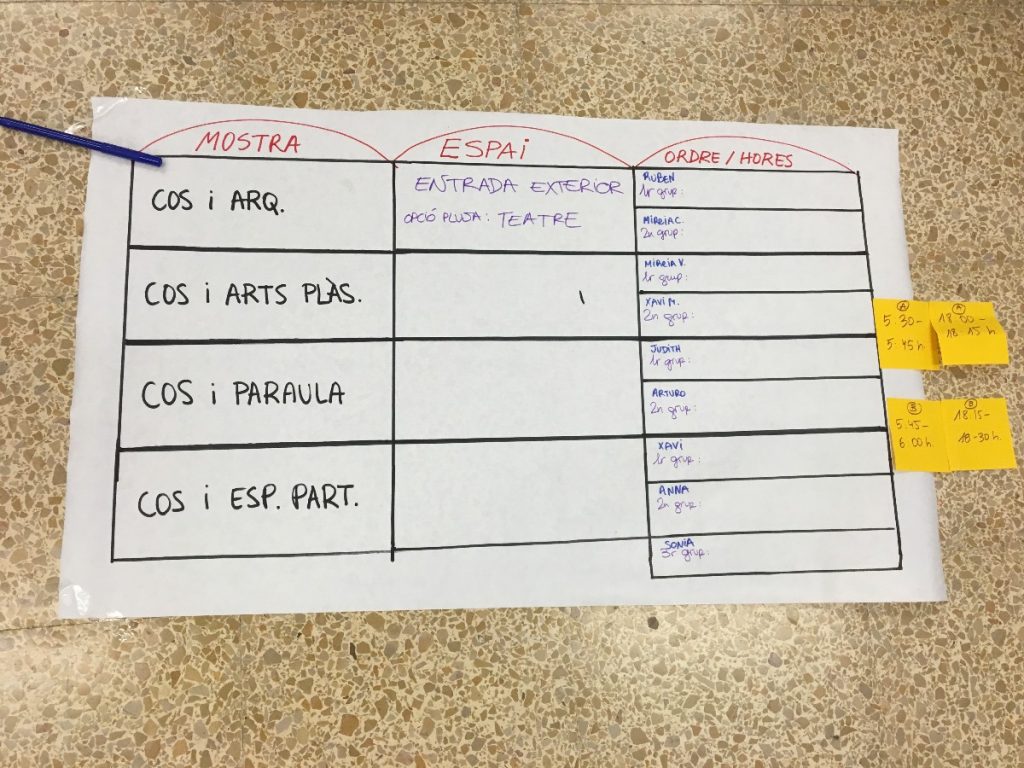 MOSTRA ESPAi ORDRE / HORES
COS i ARQ.
ENTRADA EXTERIOR
OPCIÓ PLUJA: TEATRE
RUBEN
1r grup:
MiREIA C.
2n grup:
COS i ARTS PLÀS.
MiREIA V.
1r grup:
XAVi M.
2n grup:
COS i PARAULA
JUDiTH
1r grup:
ARTURO
2n grup:
COS i ESP. PART.
XAVi
1r grup:
ANNA
2n grup:
SONiA
3r grup:
A
5:30-
5:45 h.
A
18:00-
18-15 h.
B
5:45-
6:00 h.
B
18:15-
18-30 h.